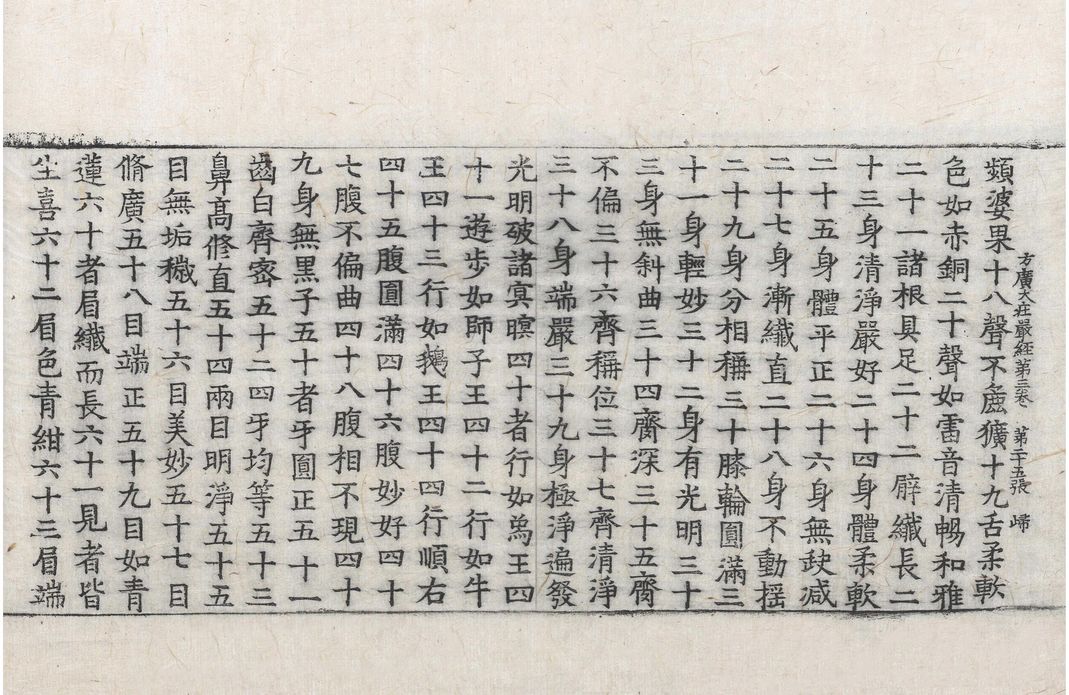 頻婆果十八聲不麁獷十九舌柔軟
方廣大莊嚴經第三卷　第二十五張　歸
色如赤銅二十聲如雷音清暢和雅
二十一諸根具足二十二臂纖長二
十三身清淨嚴好二十四身體柔軟
二十五身體平正二十六身無缺減
二十七身漸纖直二十八身不動揺
二十九身分相稱三十膝輪圓滿三
十一身輕妙三十二身有光明三十
三身無斜曲三十四齊深三十五齊
不偏三十六齊稱位三十七齊清淨
三十八身端嚴三十九身極淨遍發
光明破諸冥暝四十者行如象王四
十一遊步如師子王四十二行如牛
王四十三行如鵝王四十四行順右
四十五腹圓滿四十六腹妙好四十
七腹不偏曲四十八腹相不現四十
九身無黑子五十者牙圓正五十一
齒白齊密五十二四牙均等五十三
鼻高修直五十四兩目明淨五十五
目無垢穢五十六目美妙五十七目
脩廣五十八目端正五十九目如青
蓮六十者眉纖而長六十一見者皆
生喜六十二眉色青紺六十三眉端